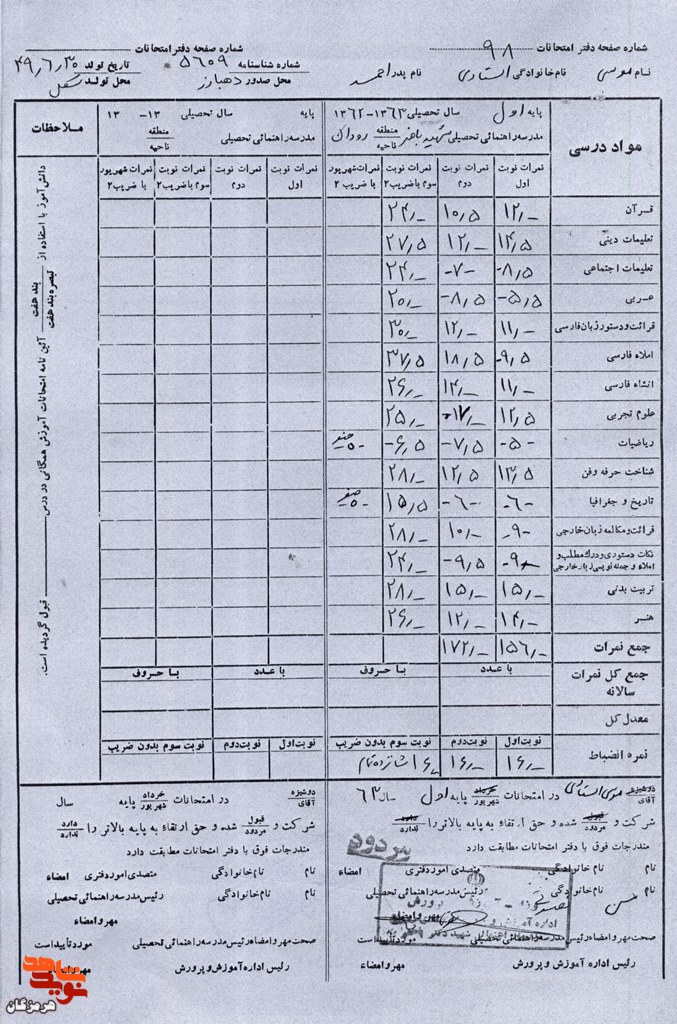 شماره صفحه دفتر امتحانات ۹۸
شماره صفحه دفتر امتحانات
نام موسی نام خانوادگی استادی نام پدر احمد
شماره شناسنامه ۵۶۰۹ تاریخ تولد ۴۹٫۶٫۳۰
محل صدور دهبارز محل تولد
مواد درسی
پایه اول سال تحصیلی ۱۳۶۳-۱۳۶۲
مدرسه راهنمائی تحصیلی شهید باهنر منطقه ناحیه رودان
نمرات نوبت اول نمرات نوبت دوم نمرات نوبت سوم با ضریب ۲ نمرات شهریور با ضریب ۲
پایه سال تحصیلی ۱۳- ۱۳
مدرسه راهنمائی تحصیلی منطقه ناحیه
نمرات نوبت اول نمرات نوبت دوم نمرات نوبت سوم با ضریب ۲ نمرات شهریور با ضریب ۲
ملاحظات
قرآن ۱۲٫- ۱۰٫۵ ۲۴٫-
تعلیمات دینی ۱۴٫۵ ۱۲٫- ۲۷٫۵
تعلیمات اجتماعی -۸٫۵ -۷- ۲۴٫-
عربی -۵٫۵ -۸٫۵ ۲۰٫-
قرائت و دستور زبان فارسی ۱۱٫- ۱۲٫- ۳۰٫-
املاء فارسی -۹٫۵ ۱۸٫۵ ۳۷٫۵
انشاء فارسی ۱۱٫- ۱۴٫- ۲۶٫-
علوم تجربی ۱۲٫۵ ۱۷٫- ۲۵٫-
ریاضیات -۵- -۷٫۵ -۶٫۵
شناخت حرفه و فن ۱۳٫۵ ۱۲٫۵ ۲۸٫-
تاریخ و جغرافیا -۶- -۶- ۱۵٫۵ صفر
قرائت و مکالمه زبان خارجی -۹- ۱۰٫- ۲۸٫-
نکات دستوری و درک مطلب و املاء و جمله نویسی زبان خارجی -۹- -۹٫۵ ۲۴٫-
تربیت بدنی ۱۵٫- ۱۵٫- ۲۸٫-
هنر ۱۴٫- ۱۲٫- ۲۶٫-
جمع نمرات ۱۵۶٫- ۱۷۲٫-
جمع کل نمرات سالانه با عدد با حروف با عدد با حروف
معدل کل
نمره انضباط نوبت اول نوبت دوم نوبت سوم بدون ضریب نوبت اول نوبت دوم نوبت سوم بدون ضریب
۱۶٫- ۱۶٫- ۱۶٫- شانزده تمام
دانش آموز با استفاده از بند هفت تبصره بند هفت آئین نامه امتحانات آموزش همگانی در درس قبول گردیده است.
دوشیزه آقای موسی استادی در امتحانات خرداد شهریور پایه اول سال ۶۳
شرکت و قبول مردود شده و حق ارتقاء به پایه بالاتر را دارد ندارد
مردود
مندرجات فوق با دفتر امتحانات مطابقت دارد
نام نام خانوادگی متصدی امور دفتری امضاء
نام نام خانوادگی رئیس مدرسه راهنمائی تحصیلی
مهر و امضاء
صحت مهر و امضاء رئیس مدرسه راهنمائی تحصیلی مورد تأیید است
رئیس اداره آموزش و پرورش مهر و امضاء
دوشیزه آقای در امتحانات خرداد شهریور پایه سال
شرکت و قبول مردود شده و حق ارتقاء به پایه بالاتر را دارد ندارد
مندرجات فوق با دفتر امتحانات مطابقت دارد
نام نام خانوادگی متصدی امور دفتری امضاء
نام نام خانوادگی رئیس مدرسه راهنمائی تحصیلی
مهر و امضاء
صحت مهر و امضاء رئیس مدرسه راهنمائی تحصیلی مورد تأیید است
رئیس اداره آموزش و پرورش مهر و امضاء
نوید شاهد
هرمزگان